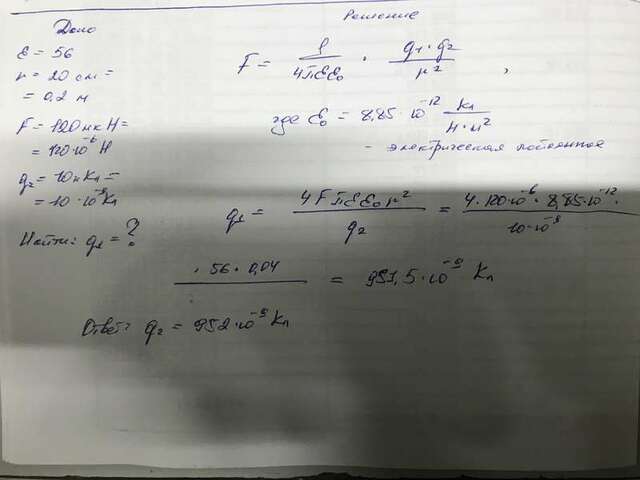 Дано
ε = 56
r = 20 см =
= 0,2 м
F = 120 мк Н =
= 120·10⁻⁶ Н
q₂ = 10 нКл =
= 10·10⁻⁹ Кл
Найти: q₁ = ?
Решение
F = 1/4πεε₀ · q₁·q₂/r² ,
где ε₀ = 8,85·10⁻¹² Кл/Н·м²
- электрическая постоянная
q₁ = 4Fπεε₀r²/q₂ = 4·120·10⁻⁶·8,85·10⁻¹²·/10·10⁻⁹
·56·0,04 = 951,5·10⁻⁹ Кл
Ответ: q₂ = 952·10⁻⁹ Кл